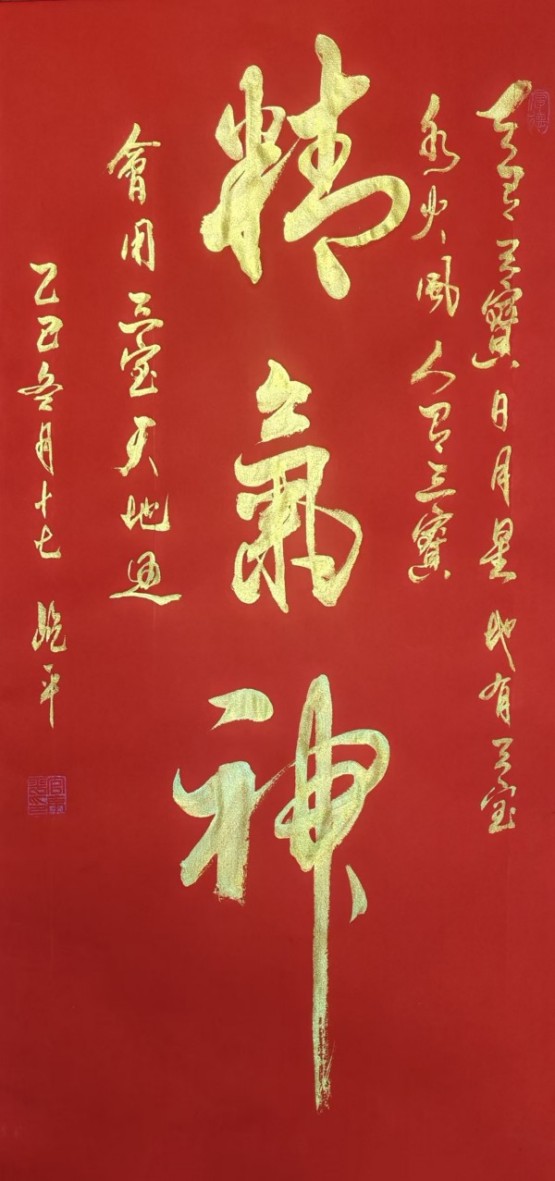 天有三寶日月星地有三宝
水火風人有三寶
精氣神
會用三宝天地通
乙巳冬月十七 平